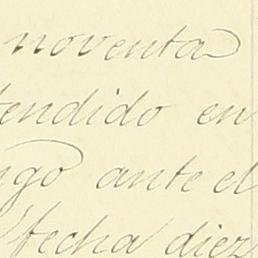 noventa
tendido en
ngo ante el
fecha diez